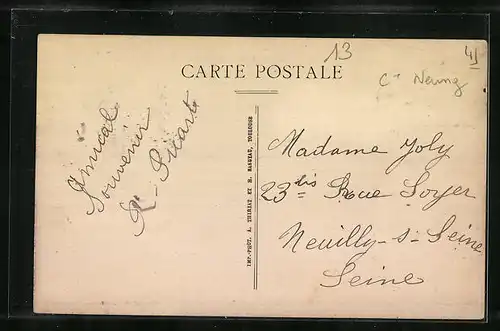 13
41
CARTE POSTALE
Cⁿ Neung
Amical
Souvenir
R. Picart
IMP.-PHOT. A. THIRIAT ET M. BASUYAU, TOULOUSE
Madame Joly
23 bis Rue Soyer
Neuilly-s-Seine
Seine